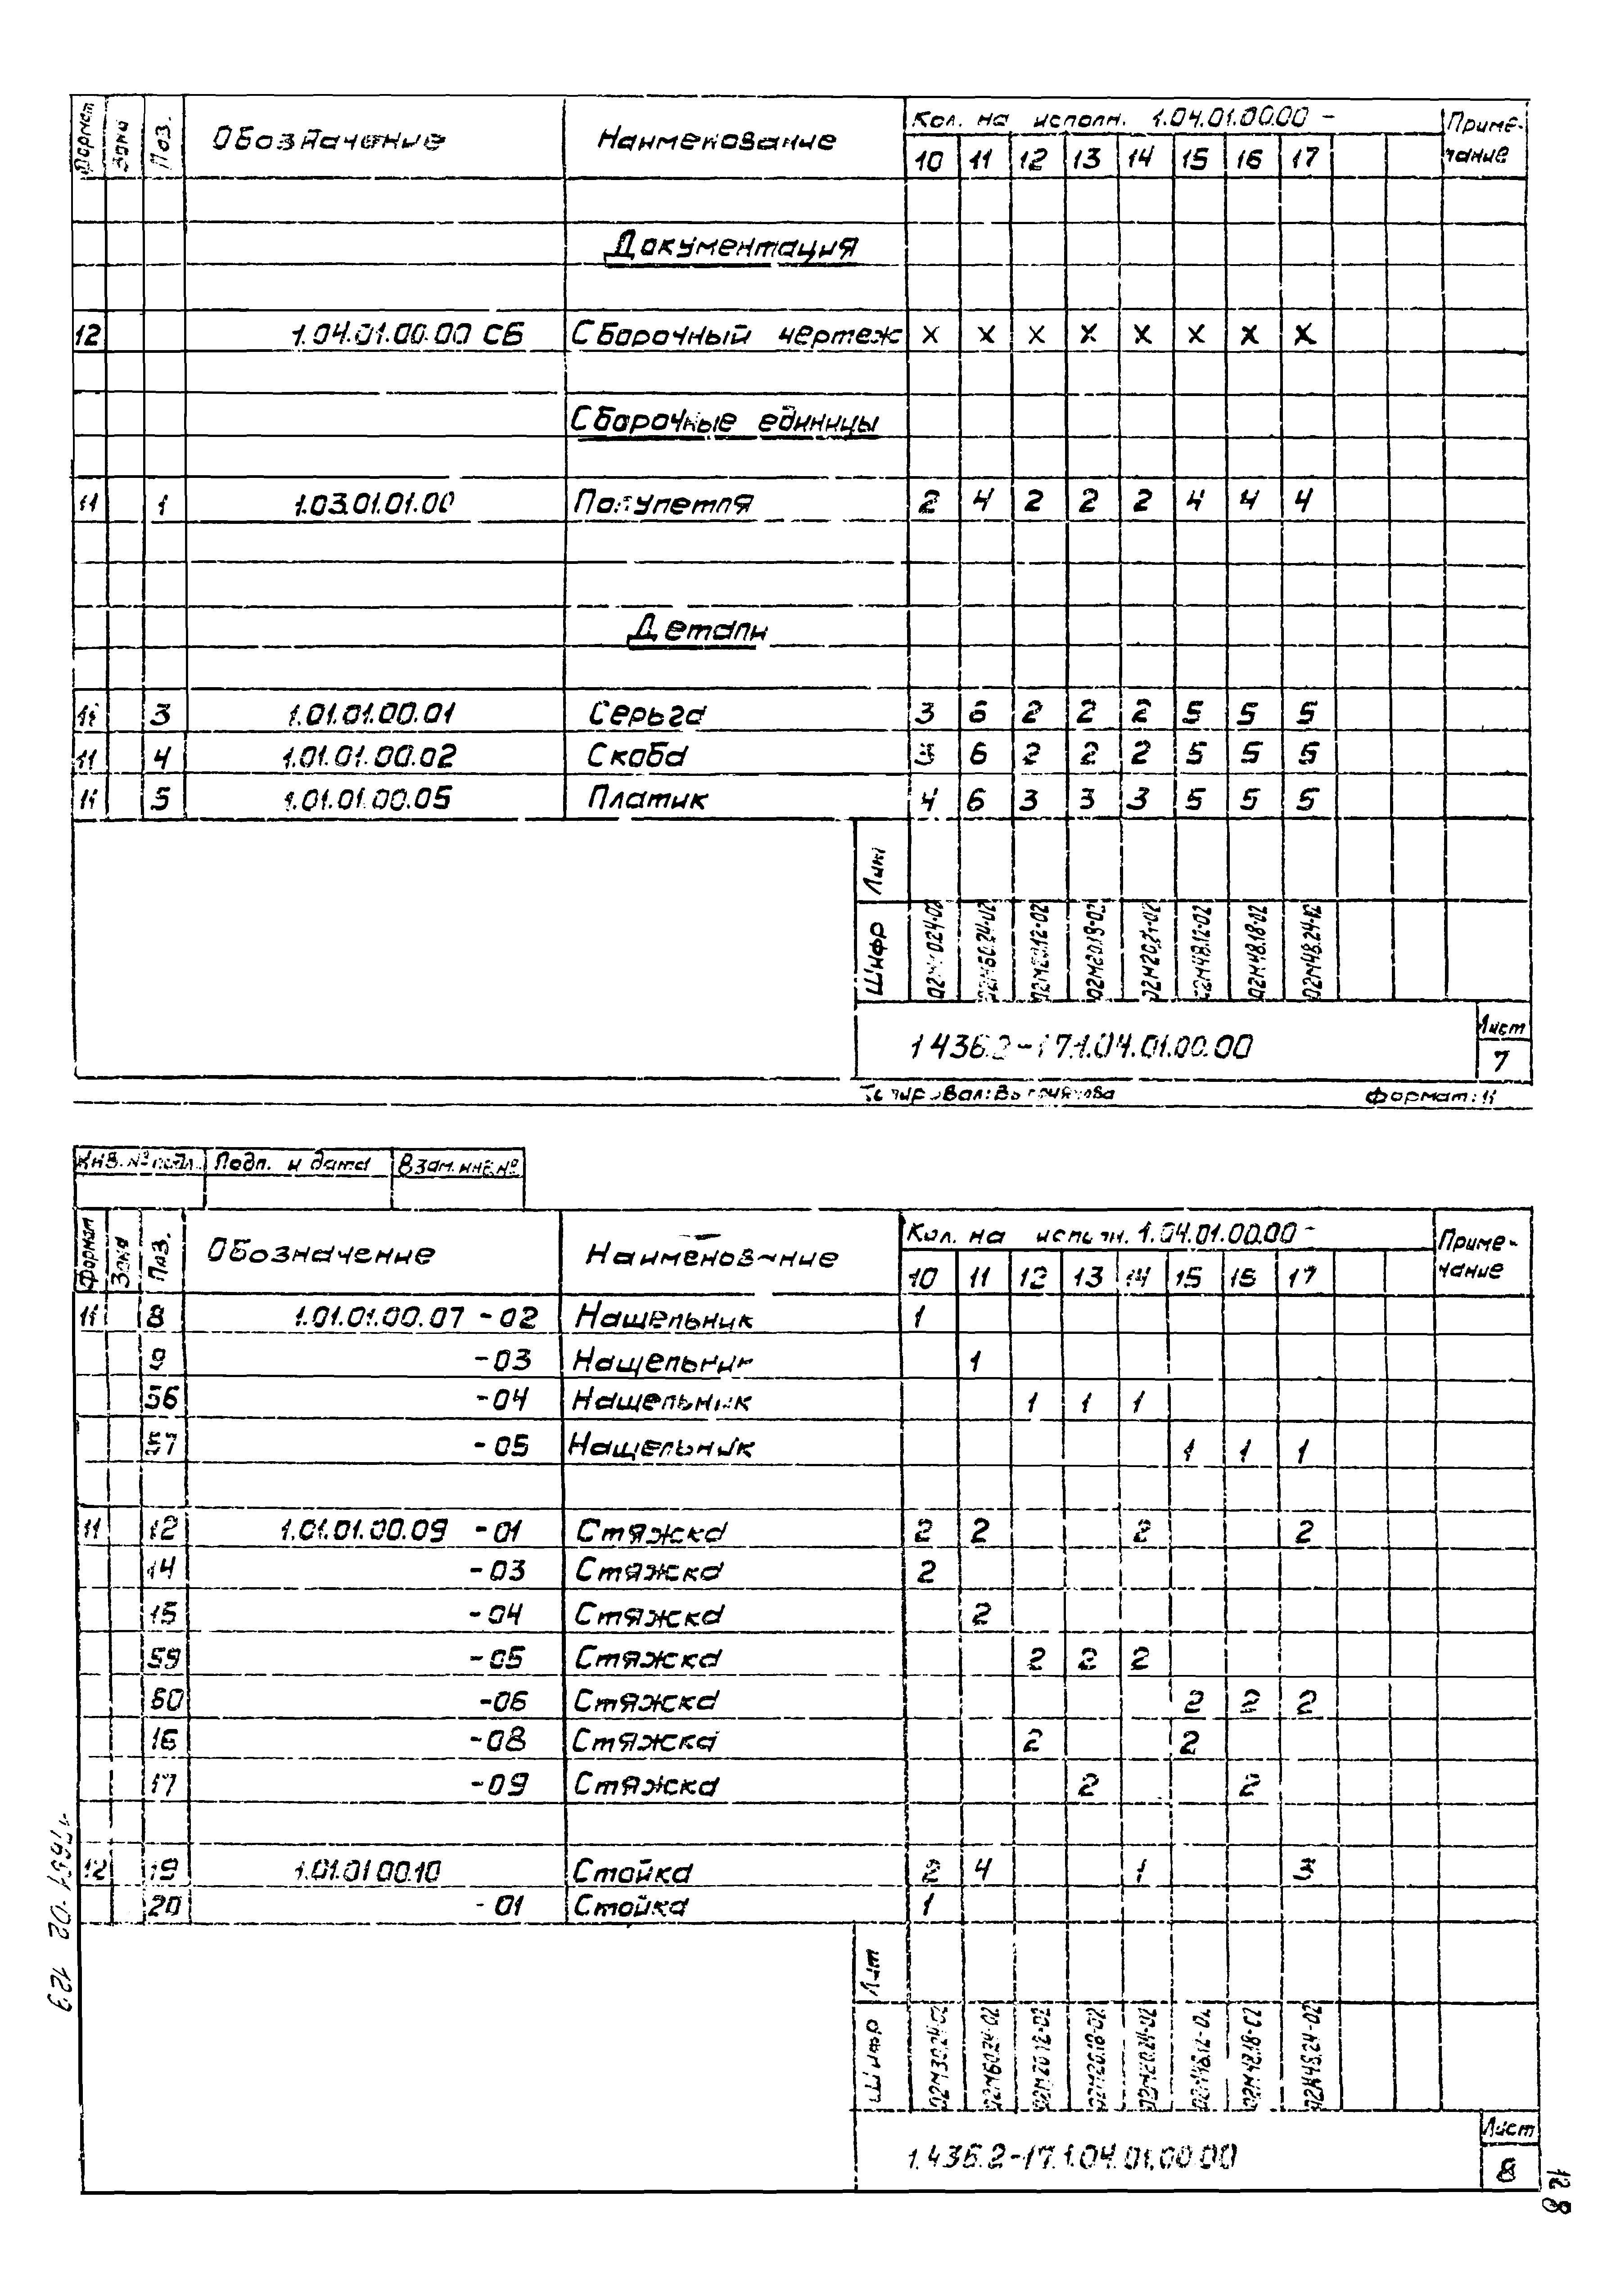 Формат Зона Поз. Обозначение Наименование Кол. на исполн. 1.04.01.00.00 - Приме-
чание
10 11 12 13 14 15 16 17
Документация
12 1.04.01.00.00 СБ Сборочный чертеж х х х х х х х х
Сборочные единицы
11 1 1.03.01.01.00 Полупетля 2 4 2 2 2 4 4 4
Детали
11 3 1.01.01.00.01 Серьга 3 6 2 2 2 5 5 5
11 4 1.01.01.00.02 Скоба 3 6 2 2 2 5 5 5
11 5 1.01.01.00.05 Платик 4 6 3 3 3 5 5 5
Шифр
1.436.2-17.1.04.01.00.00 Лист
7
Формат: 11
Инв. № подл. Подп. и дата Взам. инв. №
Формат Зона Поз. Обозначение Наименование Кол. на исполн. 1.04.01.00.00 - Приме-
чание
10 11 12 13 14 15 16 17
11 8 1.01.01.00.07 -02 Нащельник 1
9 -03 Нащельник 1
56 -04 Нащельник 1 1 1
57 -05 Нащельник 1 1 1
11 12 1.01.01.00.09 -01 Стяжка 2 2 2 2
14 -03 Стяжка 2
15 -04 Стяжка 2
59 -05 Стяжка 2 2 2
60 -06 Стяжка 2 2 2
16 -08 Стяжка 2 2
17 -09 Стяжка 2 2
12 19 1.01.01.00.10 Стойка 2 4 1 3
20 -01 Стойка 1
Лит
Шифр 02М30.24-02 02М60.24-02 02М20.12-02 02М20.18-02 02М20.24-02 02М48.12-02 02М48.18-02 02М48.24-02
1.436.2-17.1.04.01.00.00 Лист
8
128